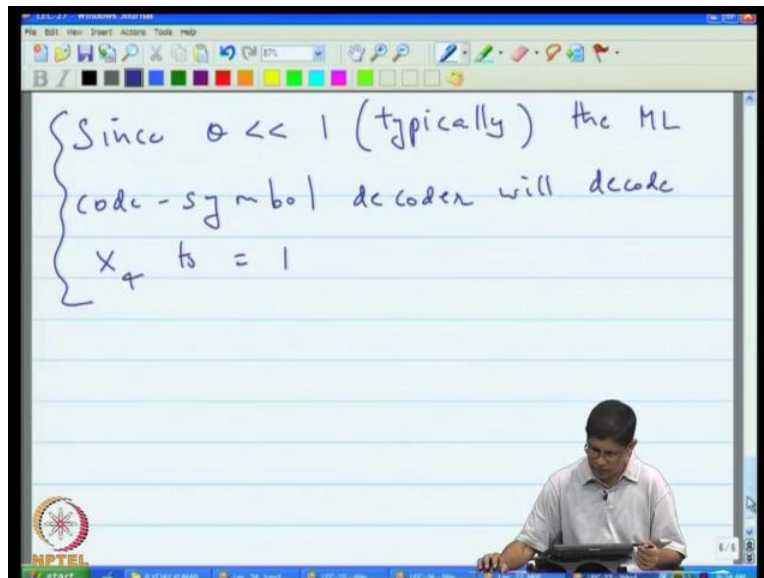 LEC-27 - Windows Journal
File Edit View Insert Actions Tools Help
87%
B I
Since θ << 1 (typically) the ML
code-symbol decoder will decode
x₄ to = 1
6/6
NPTEL
start